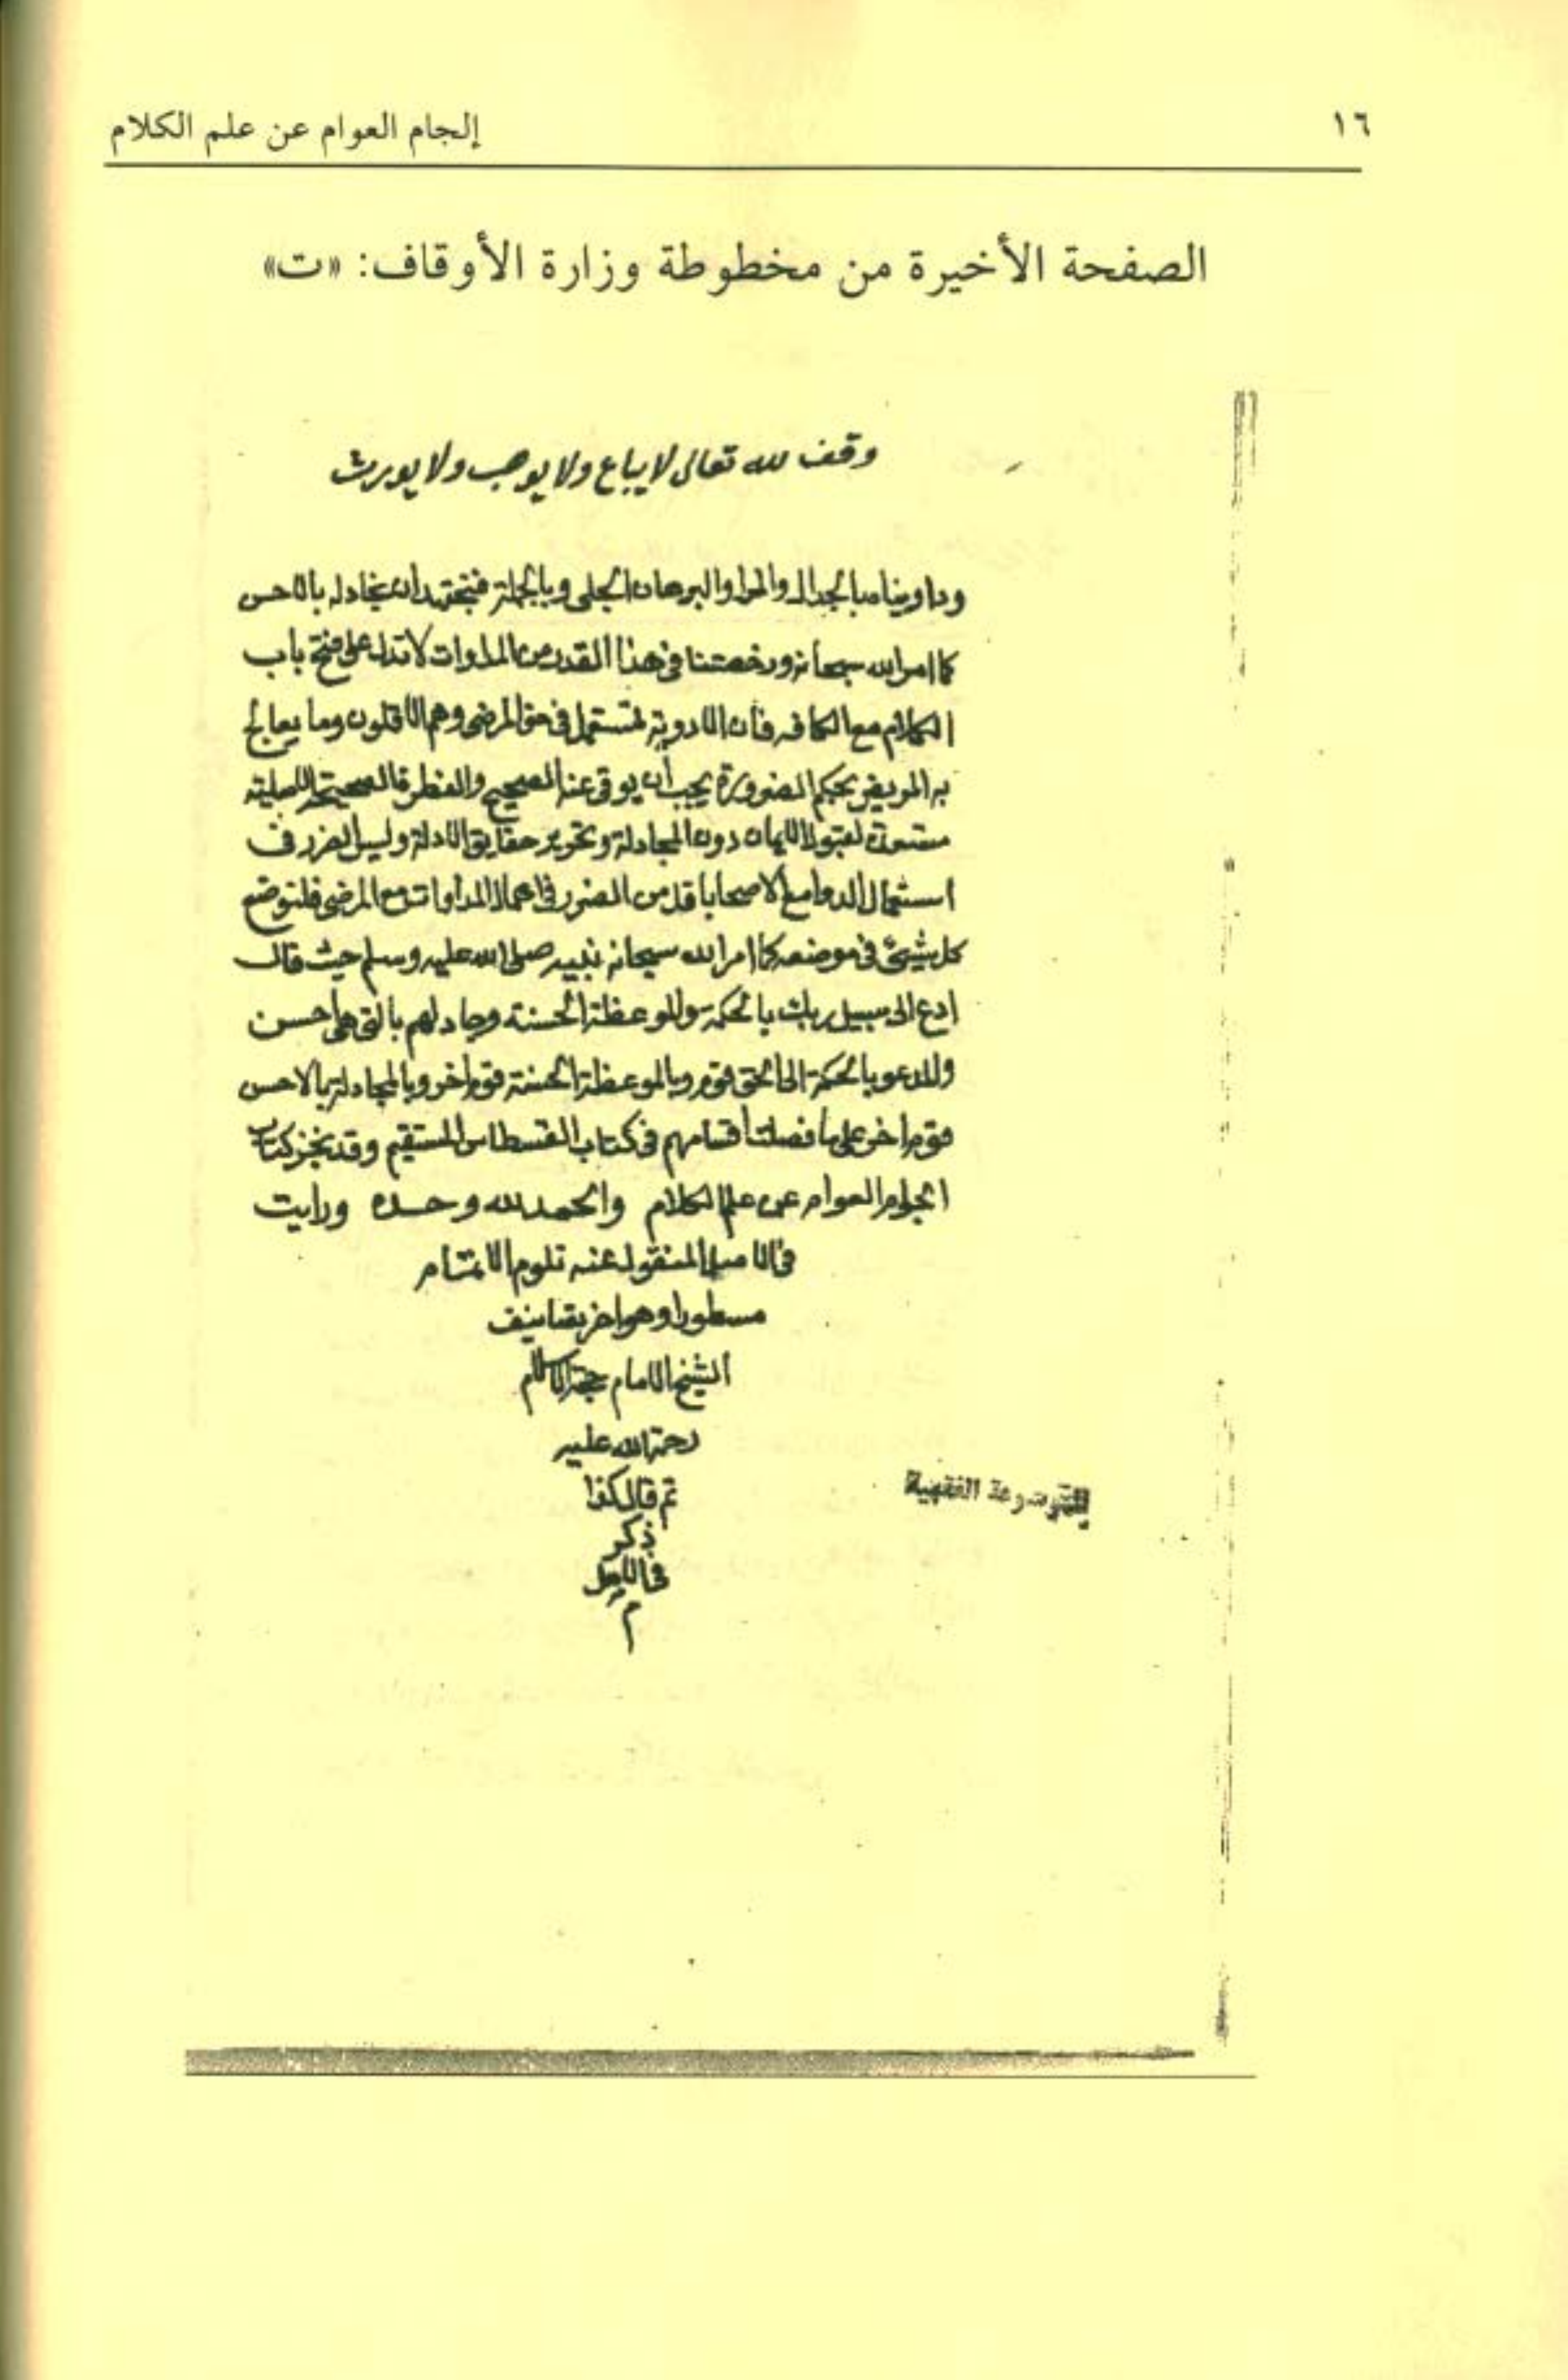 ١٦
إلجام العوام عن علم الكلام
الصفحة الأخيرة من مخطوطة وزارة الأوقاف: «ت»
وقف لله تعالى لا يباع ولا يوهب ولا يورث
وداويناه بالجدال والمرا والبرهان الجلى وبالجملة فنجتهد ان نجادله بالاحسن
كما امر الله سبحانه ورخصتنا فى هذا القدر من المداوات لا تدل على فتح باب
الكلام مع الكافه فان الادوية تستعمل فى حق المرضى وهم الاقلون وما يعالج
به المريض بحكم الضرورة يجب أن يوقى عنه الصحيح والفطرة الصحيحة الاصلية
مستعدة لقبول الايمان دون المجادلة وتحرير حقايق الادلة وليس الضرر فى
استعمال الدوا مع الاصحا باقل من الضرر فى اهمال المداوات مع المرضى فلنوضع
كل شيئ فى موضعه كما امر الله سبحانه نبيه صلى الله عليه وسلم حيث قال
ادع الى سبيل ربك بالحكمة والموعظة الحسنة وجادلهم بالتى هى أحسن
والمدعو بالحكمة الى الحق قوم وبالموعظة الحسنة قوم اخر وبالمجادلة بالاحسن
قوم اخر على ما فصلت أقسامهم فى كتاب القسطاس المستقيم وقد نجز كتاب
الجام العوام عن علم الكلام والحمد لله وحده ورايت
فى الاصل المنقول عنه تلوم الاتمام
مسطورا وهو اخر تصانيف
الشيخ الامام حجة الاسلام
رحمة الله عليه
ثم قال كذا
ذكر
فى الاصل
م
الموسوعة الفقهية